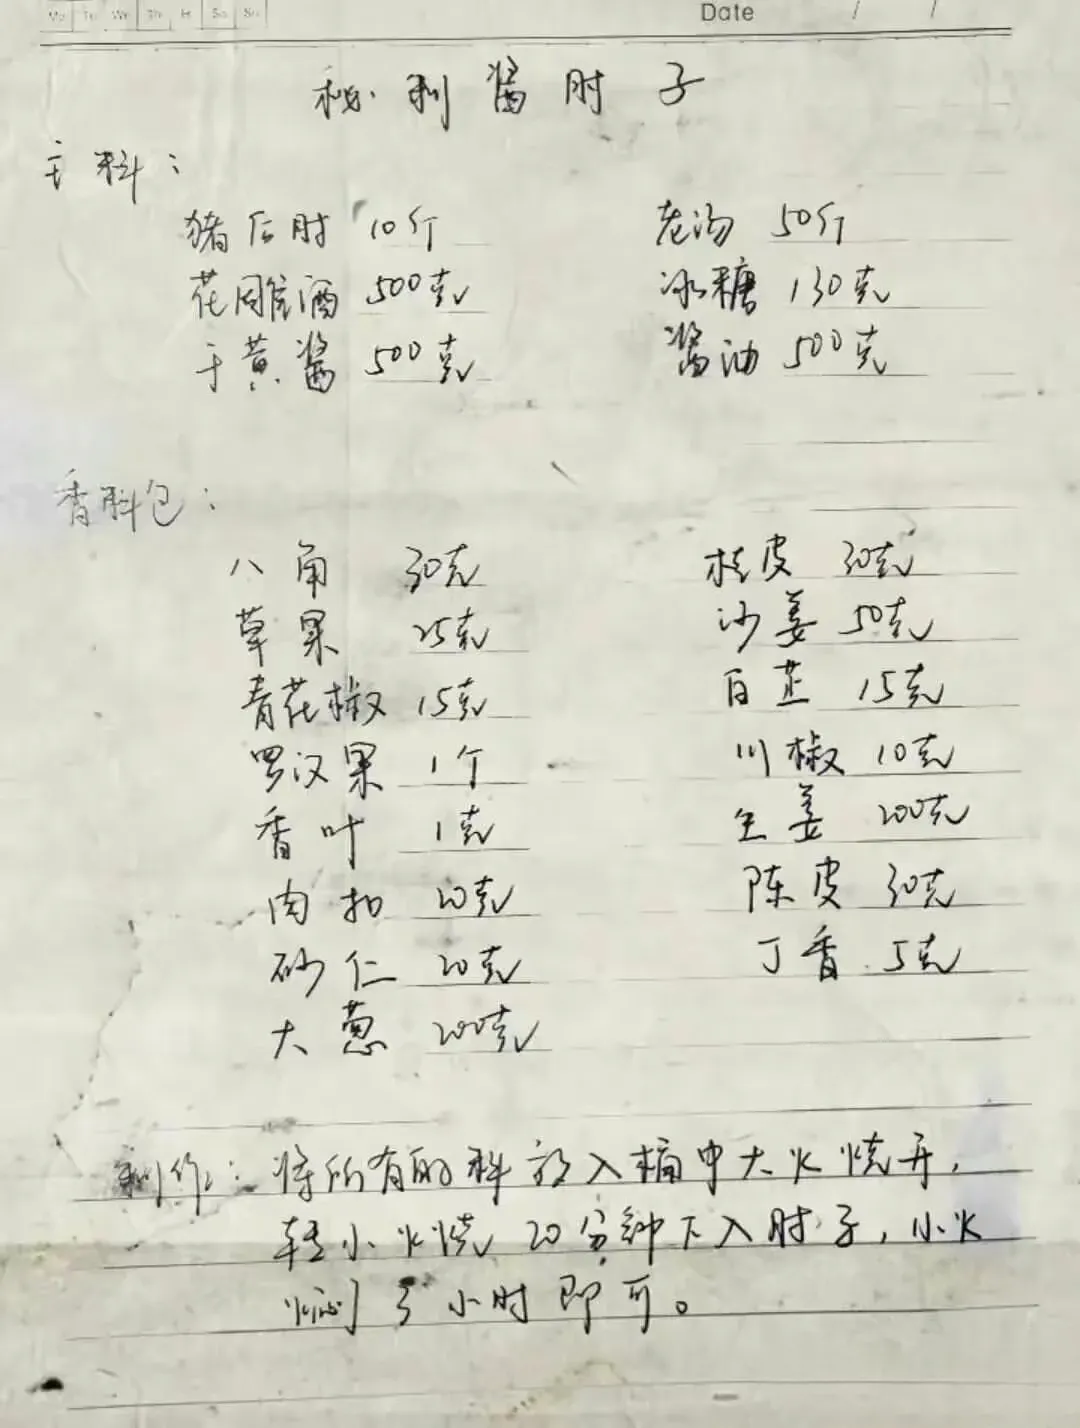 Mo Tu We Th Fr Sa Su Date / /
秘制酱肘子
主料：
猪后肘 10斤 老汤 50斤
花雕酒 500克 冰糖 130克
干黄酱 500克 酱油 500克
香料包：
八角 30克 桂皮 30克
草果 25克 沙姜 50克
青花椒 15克 白芷 15克
罗汉果 1个 川椒 10克
香叶 1克 生姜 200克
肉扣 20克 陈皮 30克
砂仁 20克 丁香 5克
大葱 200克
制作：将所有的料放入桶中大火烧开，
轻小火烧20分钟下入肘子，小火
焖3小时即可。